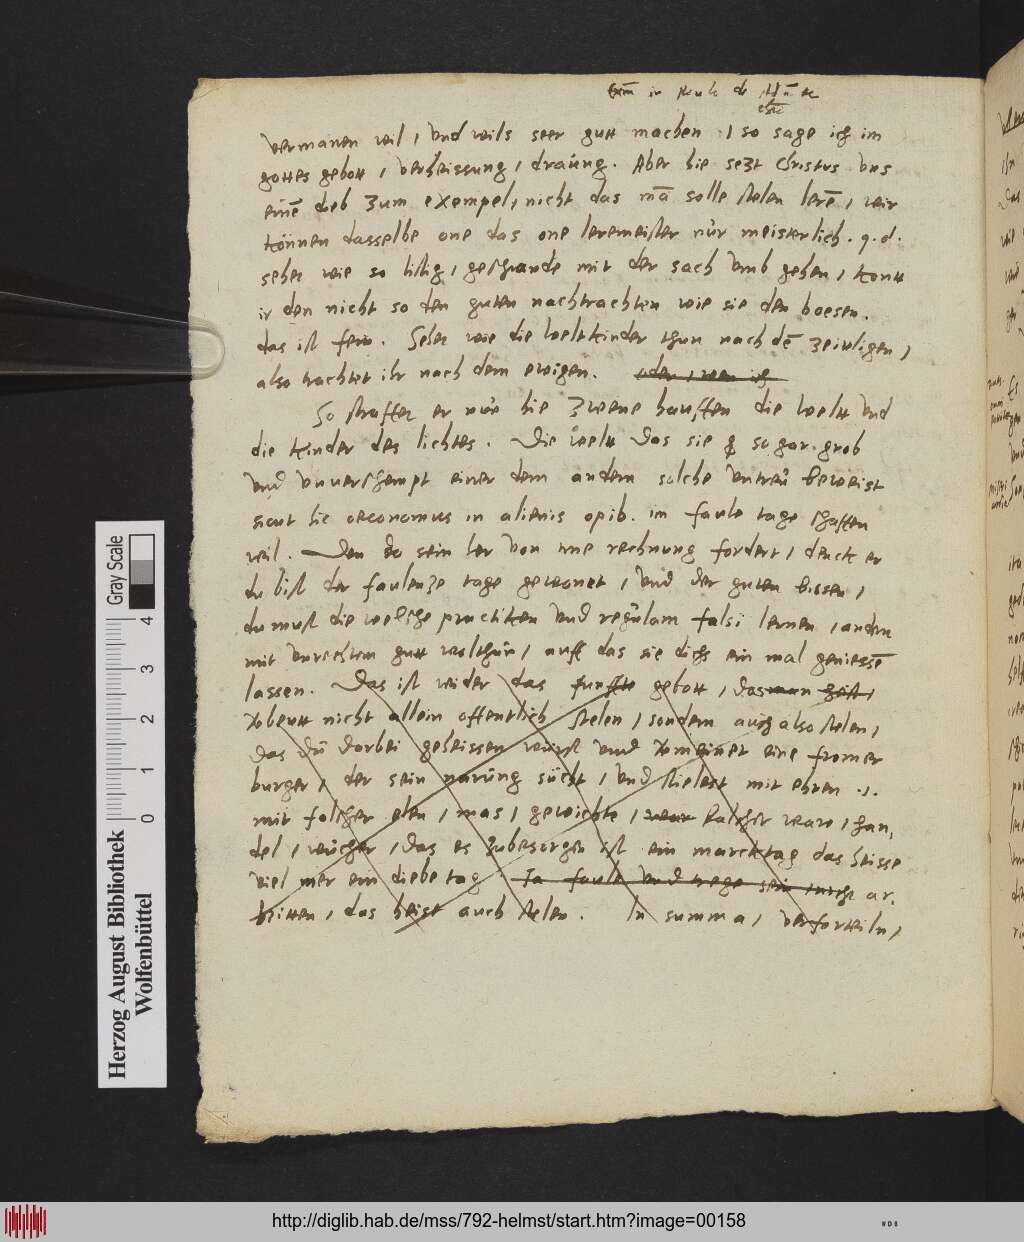 vermanen wil, vnd wils seer gutt machen, so sage ich im
gottes gebott, verheissung, draüng. Aber hie sezt Christus vns
einē dieb zum exempel, nicht das mā solle stelen lerē, wir
können dasselbe one das one leremeister nür meisterlich. q.d.
sehet wie so listig, geschwinde mit der sach vmb gehen, kont
ir den nicht so den guten nachtrachten wie sie den boesen.
das ist fein. Sehet wie die weltkinder thun nach dē zeitligen,
also trachtet ihr nach dem ewigen.
So straffet er nür hie zweene hauffen die welt vnd
die kinder des lichtes. Die welt das sie so gar grob
vnd vnuerschempt einer dem andern solche vntreü beweist
sicut hic oeconomus in alienis opib. im faule tage schaffen
wil. Den da sein her von ime rechnung fordert, denckt er
du bist der faulenze tage gewonet, vnd der guten bissen,
du must die welsche practiken vnd regülam falsi lernen, andrn
mit vnrechtem gutt wolthün, auff das sie dichs ein mal geniessē
lassen. Das ist wider das funffte gebott, das man
verbeutt nicht allein offentlich stelen, sondern auch also stelen,
das dü darbei geheissen würst vnd vermeinet eine fromer
burger, der sein narüng sücht, vnd stielest mit ehren .i.
mit falscher elen, mas, gewichte, falscher ware, han,
del, wücher, das es zubesorgen ist ein marcktag das heisse
viel mer ein diebe tag. Ja faule vnd trege sein ar.
beitten, das heist auch stelen. In summa, verforteiln,
Herzog August Bibliothek
Wolfenbüttel
Gray Scale
0 1 2 3 4
http://diglib.hab.de/mss/792-helmst/start.htm?image=00158